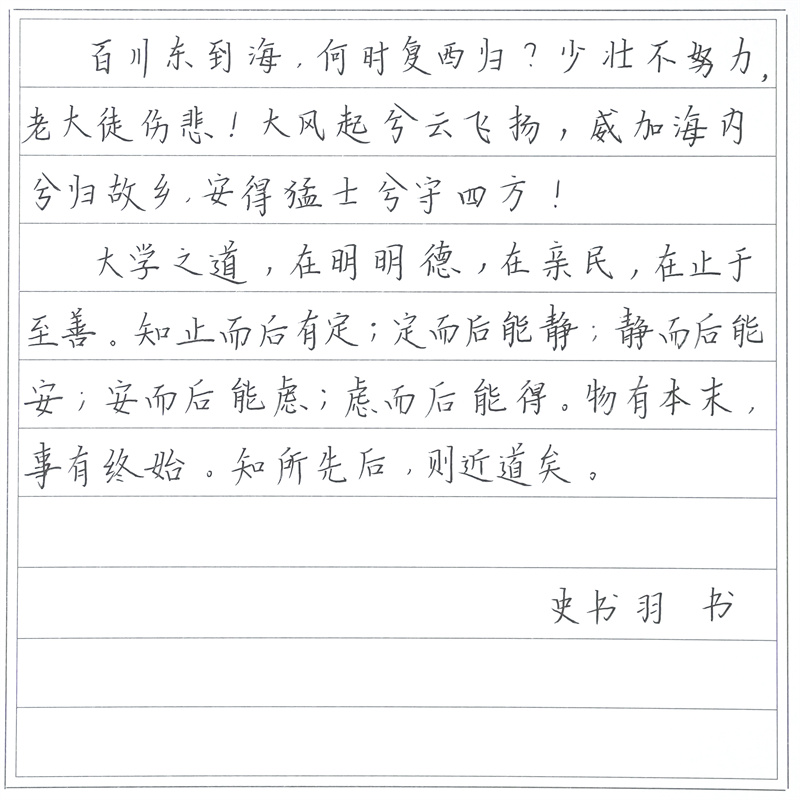 百川东到海，何时复西归？少壮不努力，
老大徒伤悲！大风起兮云飞扬，威加海内
兮归故乡，安得猛士兮守四方！
大学之道，在明明德，在亲民，在止于
至善。知止而后有定；定而后能静；静而后能
安；安而后能虑；虑而后能得。物有本末，
事有终始。知所先后，则近道矣。
史书羽 书